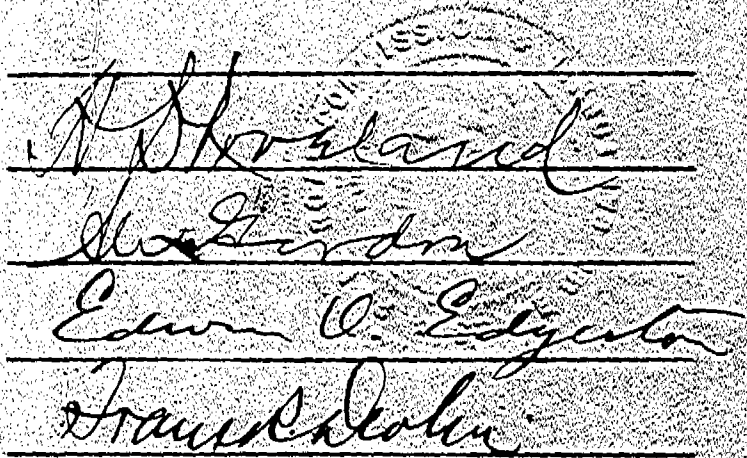 H. D. Loveland
Alex Gordon
Edwin O. Edgerton
Frank R. Devlin